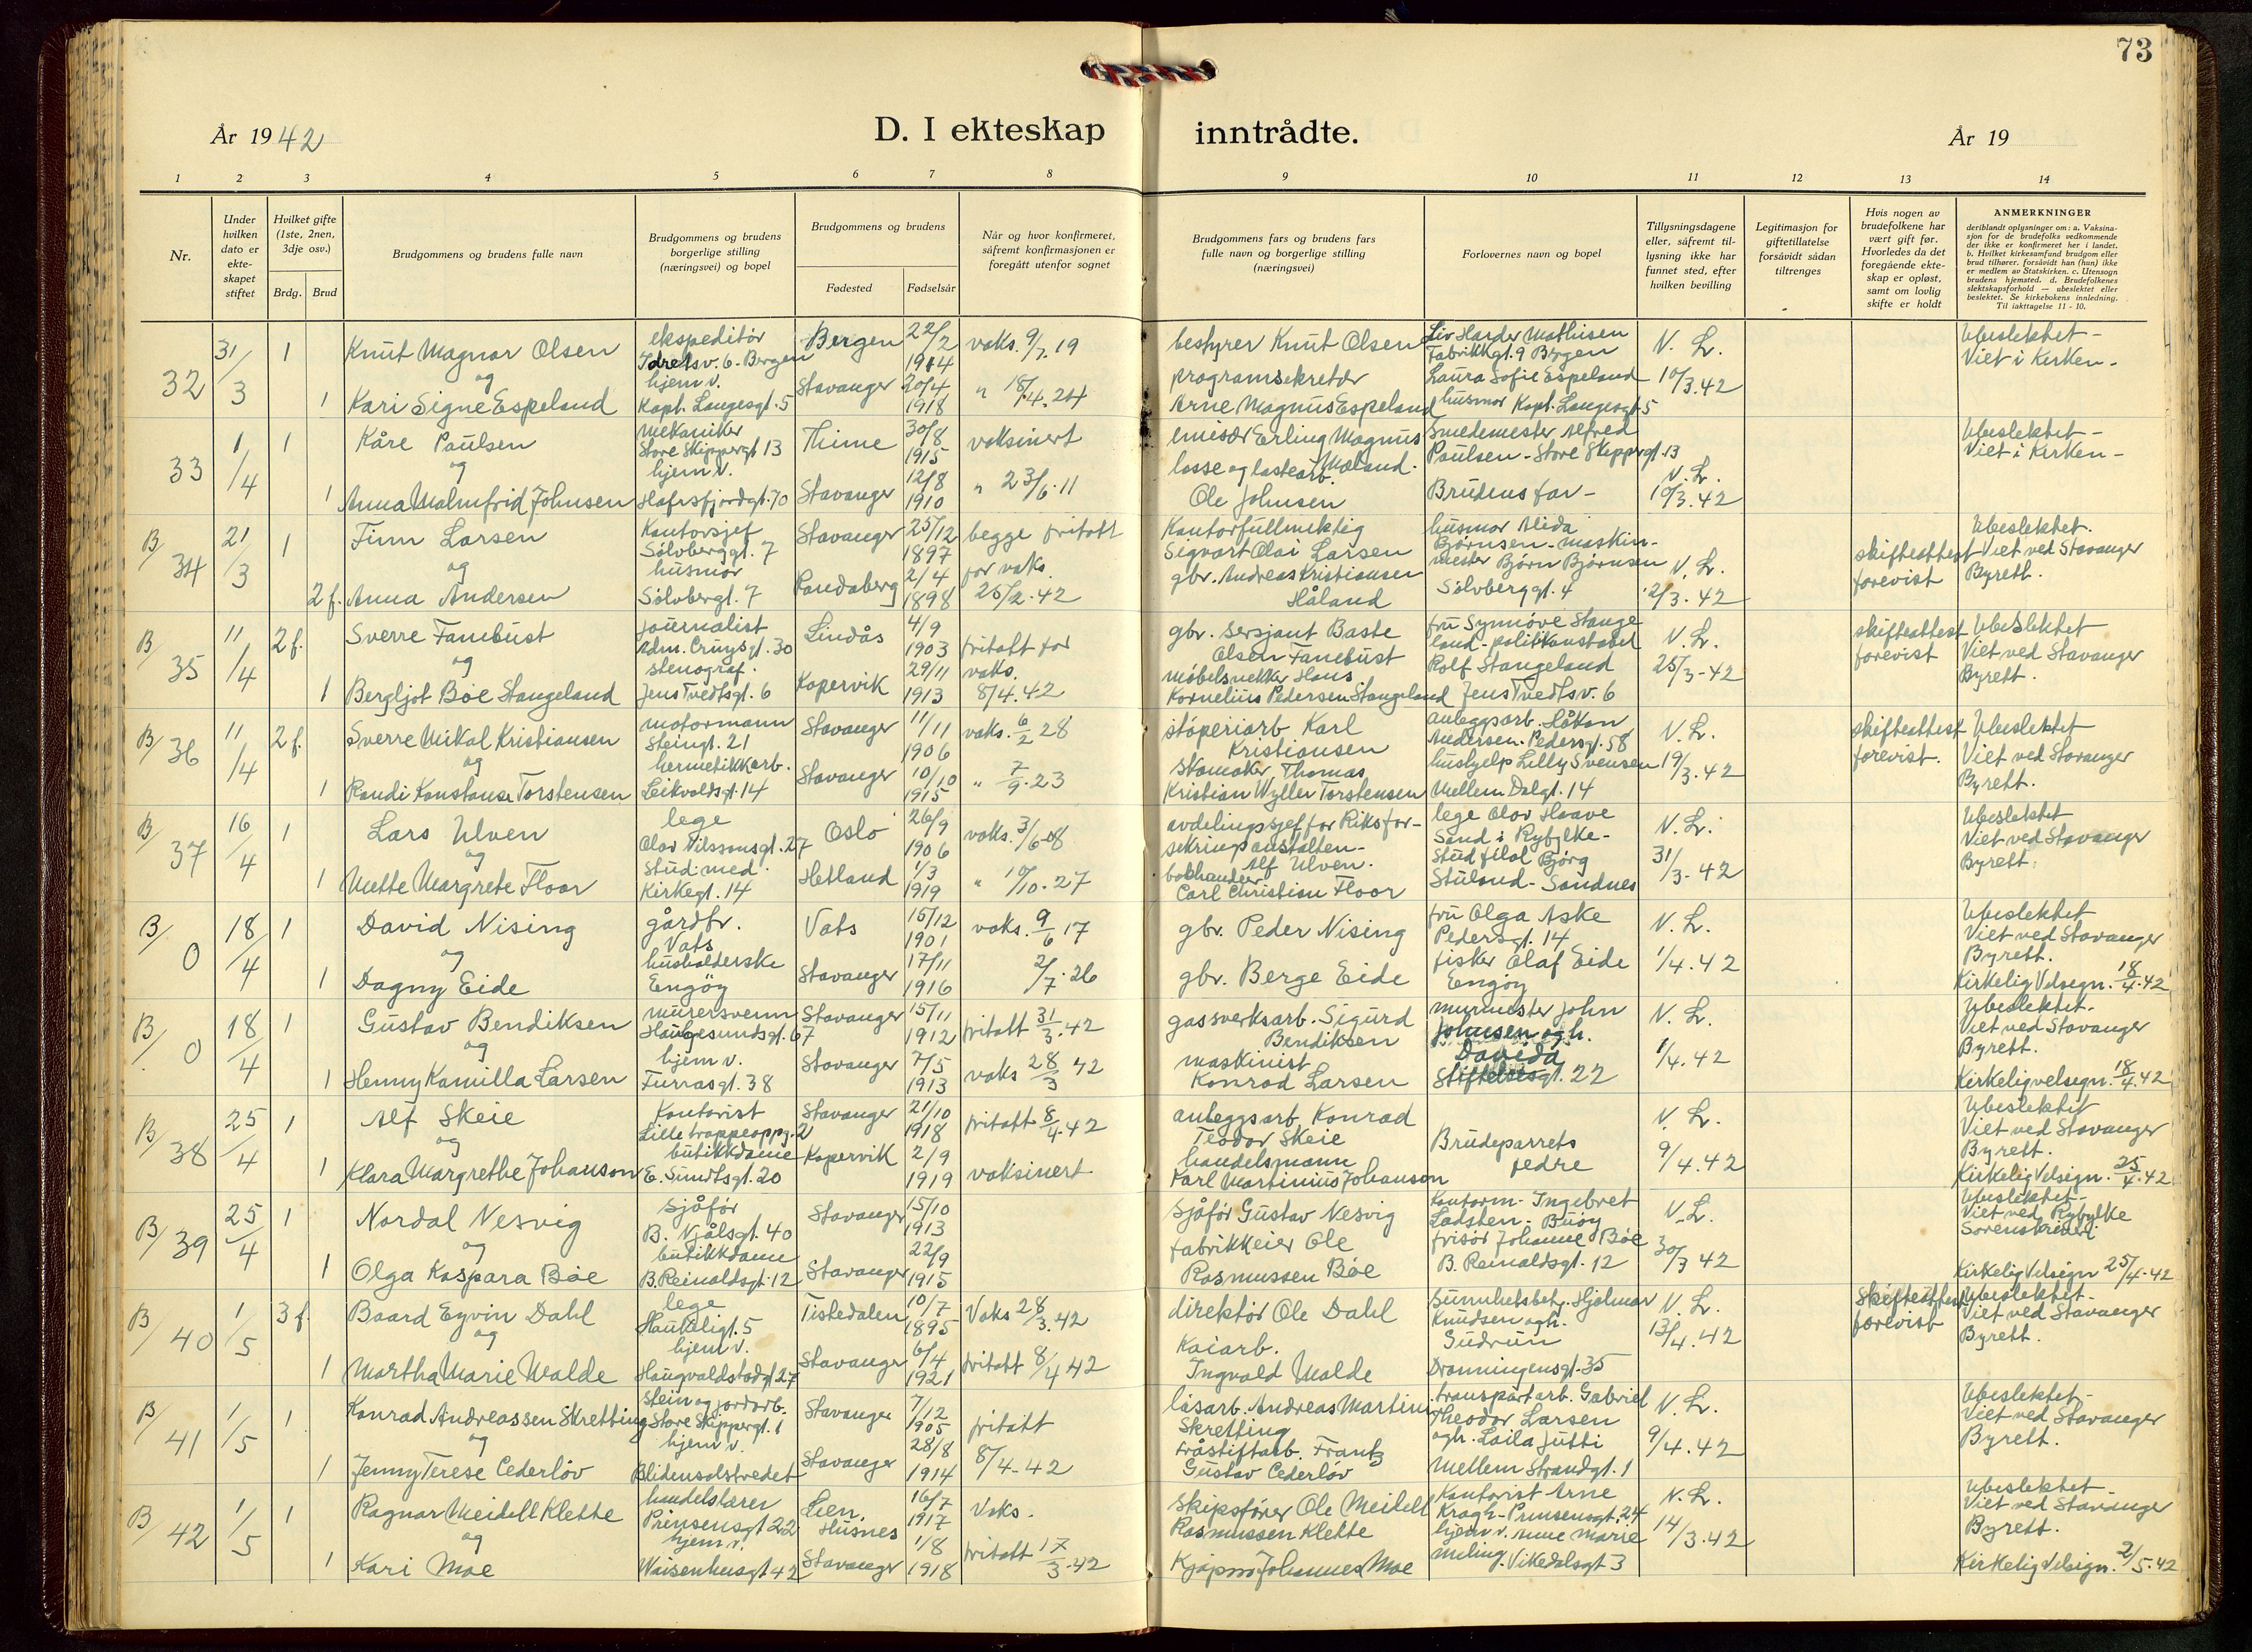 73
År 1942
D. I ekteskap inntrådte.
År 19
1 2 3 4 5 6 7 8 9 10 11 12 13 14
Nr.
Under hvilken dato er ekte-skapet stiftet
Hvilket gifte (1ste, 2nen, 3dje osv.)
Brdg. Brud
Brudgommens og brudens fulle navn
Brudgommens og brudens borgerlige stilling (næringsvei) og bopel
Brudgommens og brudens
Fødested Fødselsår
Når og hvor konfirmeret, såfremt konfirmasjonen er foregått utenfor sognet
Brudgommens fars og brudens fars fulle navn og borgerlige stilling (næringsvei)
Forlovernes navn og bopel
Tillysningsdagene eller, såfremt til-lysning ikke har funnet sted, efter hvilken bevilling
Legitimasjon for giftetillatelse forsåvidt sådan tiltrenges
Hvis nogen av brudefolkene har vært gift før. Hvorledes da det foregående ekte-skap er opløst, samt om lovlig skifte er holdt
ANMERKNINGER
deriblandt oplysninger om: a. Vaksina-sjon for de brudefolks vedkommende der ikke er konfirmeret her i landet. b. Hvilket kirkesamfund brudgom eller brud tilhører, forsåvidt han (hun) ikke er medlem av Statskirken. c. Utensogn brudens hjemsted. d. Brudefolkenes slektskapsforhold — ubeslektet eller beslektet. Se kirkebokens innledning. Til iakttagelse 11 - 10.
32 31/3 1 Knut Magnar Olsen ekspeditør Idretsv. 6. Bergen Bergen 22/2 1914 vaks. 9/7 19 bestyrer Knut Olsen Liv Harder Mathisen Fabrikkgt. 9 Bergen N. L. Ubeslektet - Viet i Kirken -
og
1 Kari Signe Espeland hjem v. Kapt. Langesgt. 5 Stavanger 20/4 1918 " 18/4. 24 programsekretær Arne Magnus Espeland Laura Sofie Espeland husmor Kapt. Langesgt 5 10/3.42
33 1/4 1 Kåre Paulsen mekaniker Store Skippergt 13 Thime 30/8 1915 vaksinert emisær Erling Magnus Mæland. Smedemester Alfred Paulsen - Store Skippergt. 13 N. L. Ubeslektet - Viet i Kirken -
og
1 Anna Malmfrid Johnsen hjem v. Hafrsfjordgt. 70 Stavanger 12/8 1910 " 23/6. 11 losse og lastearb. Ole Johnsen Brudens far - 10/3. 42
B/34 21/3 1 Finn Larsen Kontorsjef Sølvberggt. 7 Stavanger 25/12 1897 begge fritatt for vaks. 26/2. 42 Kontorfullmektig Sigvart Olai Larsen husmor Alida Bjørnsen - maskin-mester Bjørn Bjørnsen N. L. skifteattest forevist Ubeslektet. Viet ved Stavanger Byrett.
og
2 f. Anna Andersen husmor Sølvbergt. 7 Randaberg 2/4 1898 gbr. Andreas Kristiansen Håland Sølvberggt. 4 2/3. 42
B/35 11/4 2 f. Sverre Fanebust journalist Adm. Cruysgt. 30 Lindås 4/9 1903 fritatt for vaks. 8/4. 42 gbr. sersjant Baste Olsen Fanebust fru Synnøve Stange land - politikonstabel N. L. skifteattest forevist Ubeslektet Viet ved Stavanger Byrett.
og
1 Bergljot Bøe Stangeland stenograf. Jens Tvedtsgt. 6 Kopervik 29/11 1913 møbelsnekker Hans Kornelius Pedersen Stangeland Rolf Stangeland Jens Tvedtsv. 6 25/3 - 42
B/36 11/4 2 f. Sverre Mikal Kristiansen motormann Steingt. 21 Stavanger 11/11 1906 vaks. 6/2 28 støperiarb Karl Kristiansen anleggsarb. Håkon Andersen. Pedersgt. 58 N. L. skifteattest forevist. Ubeslektet Viet ved Stavanger Byrett.
og
1 Randi Konstanse Torstensen hermetikkarb. Leikvoldsgt. 14 Stavanger 10/10 1915 " 7/9. 23 skomaker, Thomas Kristian Wyller Torstensen hushjelp Lilly Svensen Mellem Dalgt. 14 19/3. 42
B/37 16/4 1 Lars Ulven lege Olav Nilssonsgt. 27 Oslo 26/9 1906 vaks. 3/6 08 avdelingssjef for Riksfor-sikringsanstalten - Alf Ulven. lege Olav Haave Sand i Ryfylke - N. L. Ubeslektet Viet ved Stavanger Byrett.
og
1 Mette Margrete Floor Stud. med. Kirkegt. 14 Hetland 1/3 1919 " 10/10. 27 bokhandler Carl Christian Floor Stud filol Bjørg Stuland - Sandnes 31/3. 42
B/0 18/4 1 David Nising gårdbr. Vats Vats 15/12 1901 vaks. 9/6 17 gbr. Peder Nising fru Olga Aske Pedersgt. 14 N. L. Ubeslektet Viet ved Stavanger Byrett.
og
1 Dagny Eide husholderske Engøy Stavanger 17/11 1916 2/7. 26 gbr. Berge Eide fisker Olaf Eide Engøy 1/4. 42 Kirkelig Velsign. 18/4. 42
B/0 18/4 1 Gustav Bendiksen murersvenn Haugesundsgt. 67 Stavanger 15/11 1912 fritatt 31/3. 42 gassverksarb. Sigurd Bendiksen murmester John Johnsen og h. N. L. Ubeslektet. Viet ved Stavanger Byrett.
og
1 Henny Kamilla Larsen hjem v. Furrasgt. 38 Stavanger 7/5 1913 vaks 28/3 42 maskinist Konrad Larsen Davida Stiftelsesgt. 22 1/4. 42 Kirkelig velsign. 18/4. 42
B/38 25/4 1 Alf Skeie Kontorist Lille trappeoppg. 2 Stavanger 21/10 1918 fritatt 8/4. 42 anleggsarb. Konrad Teodor Skeie Brudeparrets fedre N. L. Ubeslektet Viet ved Stavanger Byrett.
og
1 Klara Margrethe Johanson butikkdame E. Sundtsgt. 20 Kopervik 2/9 1919 vaksinert handelsmann Karl Martinius Johanson 9/4. 42 Kirkelig Velsign. 25/4. 42
B/39 25/4 1 Nordal Nesvig sjåfør B. Njålsgt. 40 Stavanger 15/10 1913 sjåfør Gustav Nesvig Kontorm. Ingebret Ladsten - Buøy N. L. Ubeslektet - Viet ved Ryfylke Sorenskriveri
og
1 Olga Kaspara Bøe butikkdame B. Reinaldsgt. 12 Stavanger 22/9 1915 fabrikkeier Ole Rasmussen Bøe frisør Johanne Bøe B. Reinaldsgt. 12 30/3 42 Kirkelig Velsign 25/4. 42
B/40 1/5 3 f. Baard Eyvin Dahl lege Haukeligt. 5 Tistedalen 10/7 1895 Vaks 28/3. 42 direktør Ole Dahl sunnhetsbetj. Hjalmar Knudsen og h. N. L. Skifteattest forevist Ubeslektet. Viet ved Stavanger Byrett.
og
1 Martha Marie Malde hjem v. Haugvaldstadgt 27 Stavanger 6/4 1921 fritatt 8/4 42 Kaiarb. Ingvald Malde Gudrun Dronningensgt. 35 13/4. 42
B/41 1/5 1 Konrad Andreassen Skretting stein og jordarb. Store Skippergt. 1 Stavanger 7/12 1905 fritatt låsarb. Andreas Martin Skretting transportarb. Gabriel Theodor Larsen N. L. Ubeslektet - Viet ved Stavanger Byrett.
og
1 Jenny Terese Cederløv hjem v. Blidensolstredet Stavanger 28/8 1914 8/4 - 42 tråstiftarb. Frantz Gustav Cederløv og h. Laila Jutti Mellem Strandgt. 1 9/4. 42
B/42 1/5 1 Ragnar Meidell Klette handelslærer Prinsensgt 22 Lien, Husnes 16/7 1917 Vaks. Skipsfører Ole Meidell Rasmussen Klette Kontorist Arne Kragh - Prinsensgt. 24 N. L. Ubeslektet - Viet ved Stavanger Byrett.
og
1 Kari Moe hjem v. Waisenhusgt 42 Stavanger 1/8 1918 fritatt 17/3. 42 Kjøpm Johannes Moe hjem v. Anne Marie Meling. Vikedalsgt 3 14/3. 42 Kirkelig Velsign. 2/5. 42